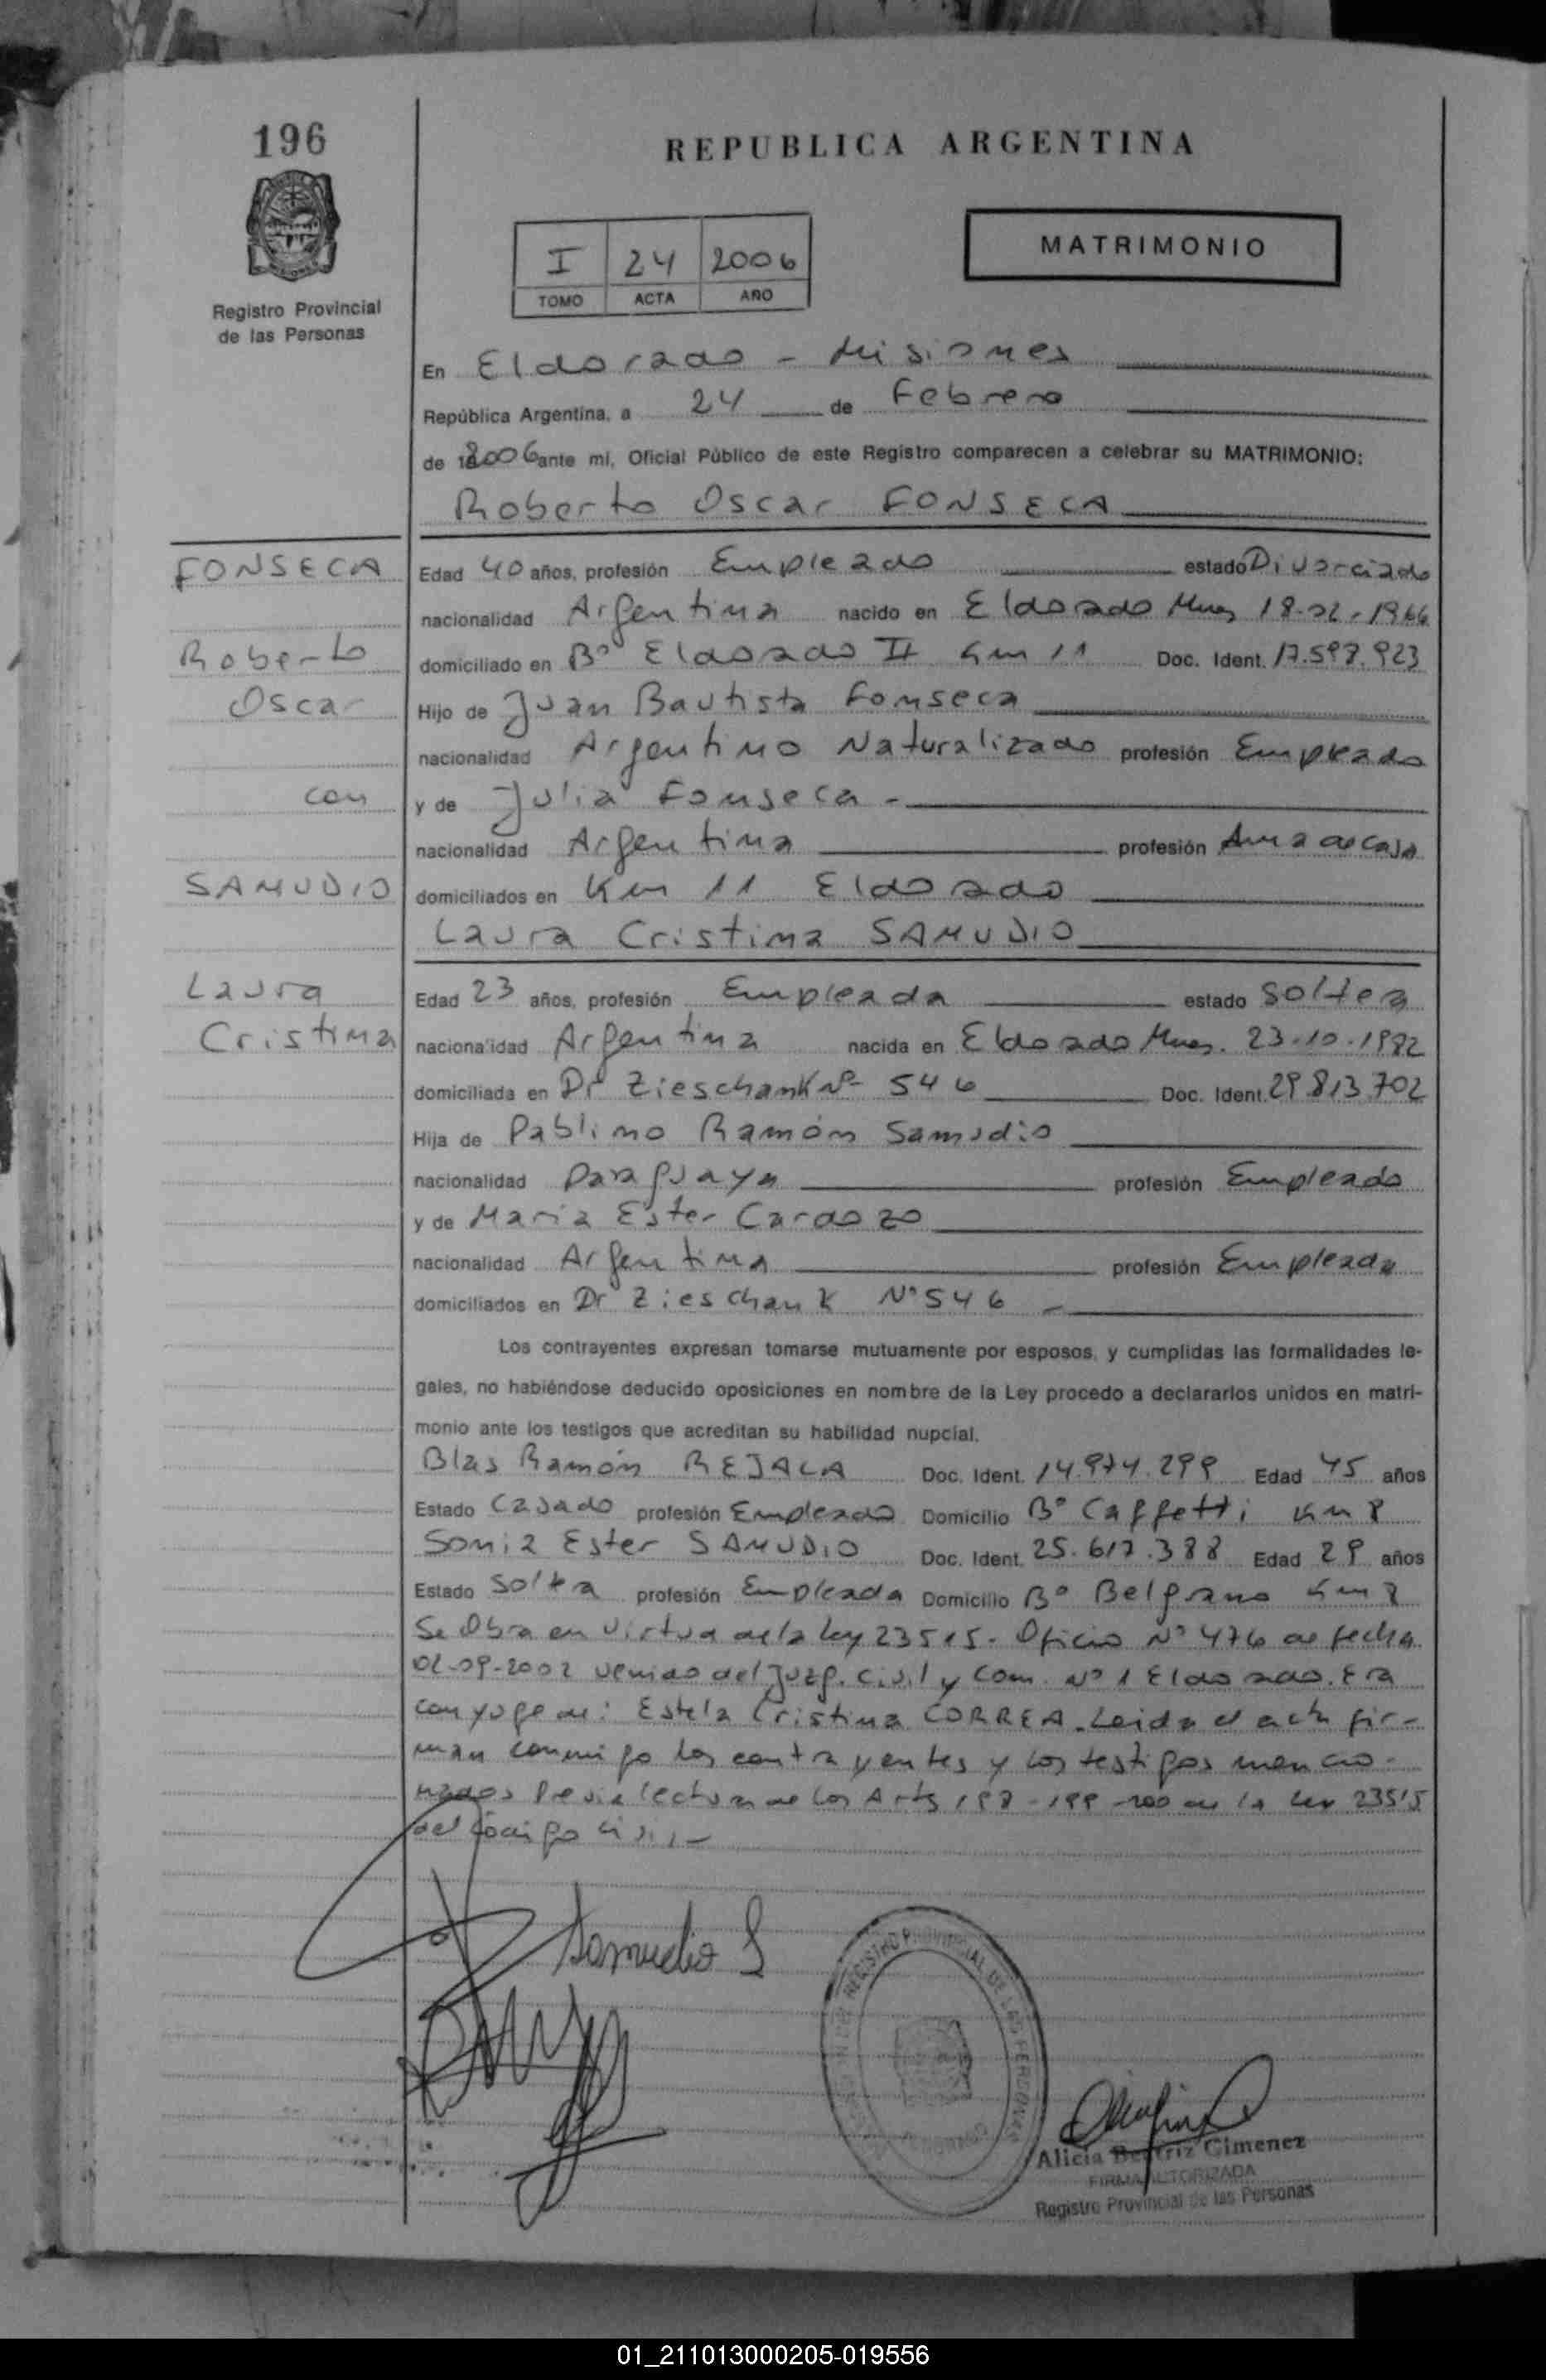 196
REPUBLICA ARGENTINA
MATRIMONIO
I 24 2006
TOMO ACTA AÑO
Registro Provincial
de las Personas
En Eldorado - Misiones
República Argentina, a 24 de Febrero
de 2006 ante mí, Oficial Público de este Registro comparecen a celebrar su MATRIMONIO:
Roberto Oscar FONSECA
FONSECA
Edad 40 años, profesión Empleado estado Divorciado
nacionalidad Argentina nacido en Eldorado Mnes 18-02-1966
Roberto
domiciliado en Bº Eldorado II Km 11 Doc. Ident. 17.597.923
Oscar
Hijo de Juan Bautista Fonseca
nacionalidad Argentino Naturalizado profesión Empleado
con
y de Julia Fonseca -
nacionalidad Argentina profesión Ama de Casa
SAMUDIO
domiciliados en Km 11 Eldorado
Laura Cristina SAMUDIO
Laura
Edad 23 años, profesión Empleada estado Soltera
Cristina
nacionalidad Argentina nacida en Eldorado Mnes. 23-10-1982
domiciliada en Dr Zieschank Nº 546 Doc. Ident. 29.813.702
Hija de Pablino Ramón Samudio
nacionalidad Paraguaya profesión Empleado
y de Maria Ester Cardozo
nacionalidad Argentina profesión Empleada
domiciliados en Dr Zieschank Nº 546 -
Los contrayentes expresan tomarse mutuamente por esposos, y cumplidas las formalidades le-
gales, no habiéndose deducido oposiciones en nombre de la Ley procedo a declararlos unidos en matri-
monio ante los testigos que acreditan su habilidad nupcial.
Blas Ramón REJALA Doc. Ident. 14.974.299 Edad 45 años
Estado Casado profesión Empleado Domicilio Bº Caffetti Km 8
Sonia Ester SAMUDIO Doc. Ident. 25.617.388 Edad 29 años
Estado Soltera profesión Empleada Domicilio Bº Belgrano Km 8
Se Obra en virtud de la ley 23515. Oficio Nº 476 de fecha
02-09-2002 venido del Juzg. Civil y Com. Nº 1 Eldorado. Era
conyuge de: Estela Cristina CORREA. Leida el acta fir-
man conmigo los contrayentes y los testigos mencio-
nados Previa lectura de los Arts 198-199-200 de la Ley 23515
del Código Civil -
Samudio S
REGISTRO PROVINCIAL DE LAS PERSONAS
Alicia Beatriz Gimenez
FIRMA AUTORIZADA
Registro Provincial de las Personas
01_211013000205-019556